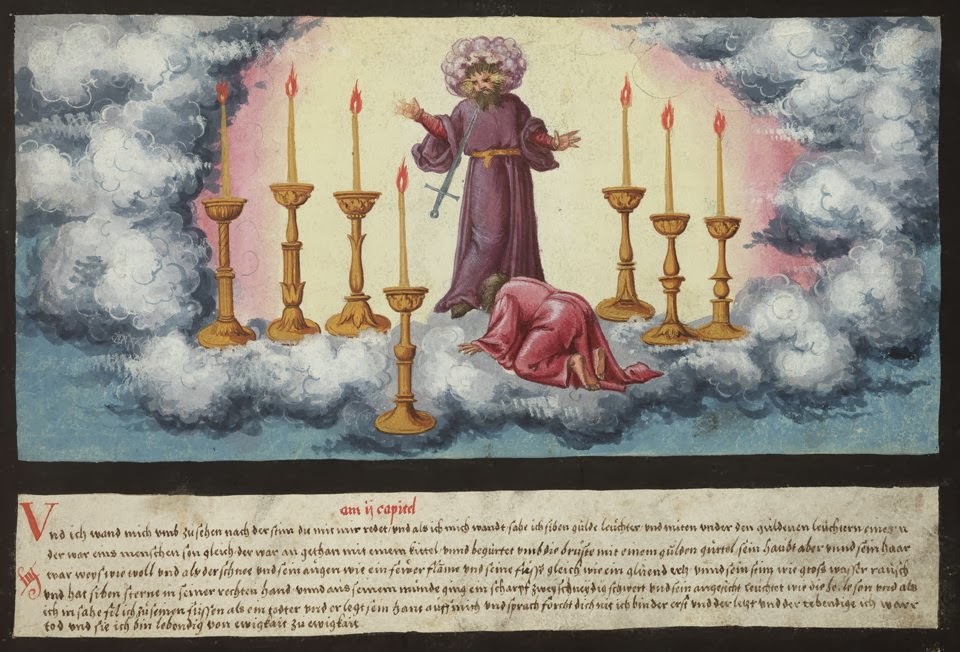 am ij capitel
Vnd ich wand mich vmb zu sehen nach der stim die mit mir redet vnd als ich mich wandt sahe ich siben gülde leüchter vnd miten vnder den güldenen leüchtern einen
der war eins menschen son gleich der war an gethan mit einem kittel vnnd begürtet vmb die brüste mit einem gülden gürtel sein haubt aber vnnd sein haar
war weys wie woll vnd als der schne vnd sein augen wie ein feẅer flame vnd seine fuess gleich wie ein glüend ertz vnnd sein stim wie gross wasser rausch
vnd hat siben sterne in seiner rechten hand vnnd aus seinem munde ging ein scharpf zweyschneydig schwert vnd sein angesicht leuchtet wie die helle son vnd als
ich in sahe fil ich zu seinen füssen als ein todter vnd er legt sein hant auff mich vnd sprach förcht dich nit ich bin der erst vnd der letzt vnd der lebendige ich ware
tod vnd sie ich bin lebendig von ewigkait zu ewigkait